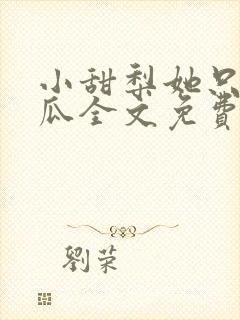 小甜梨她只
瓜全文免費
劉荣